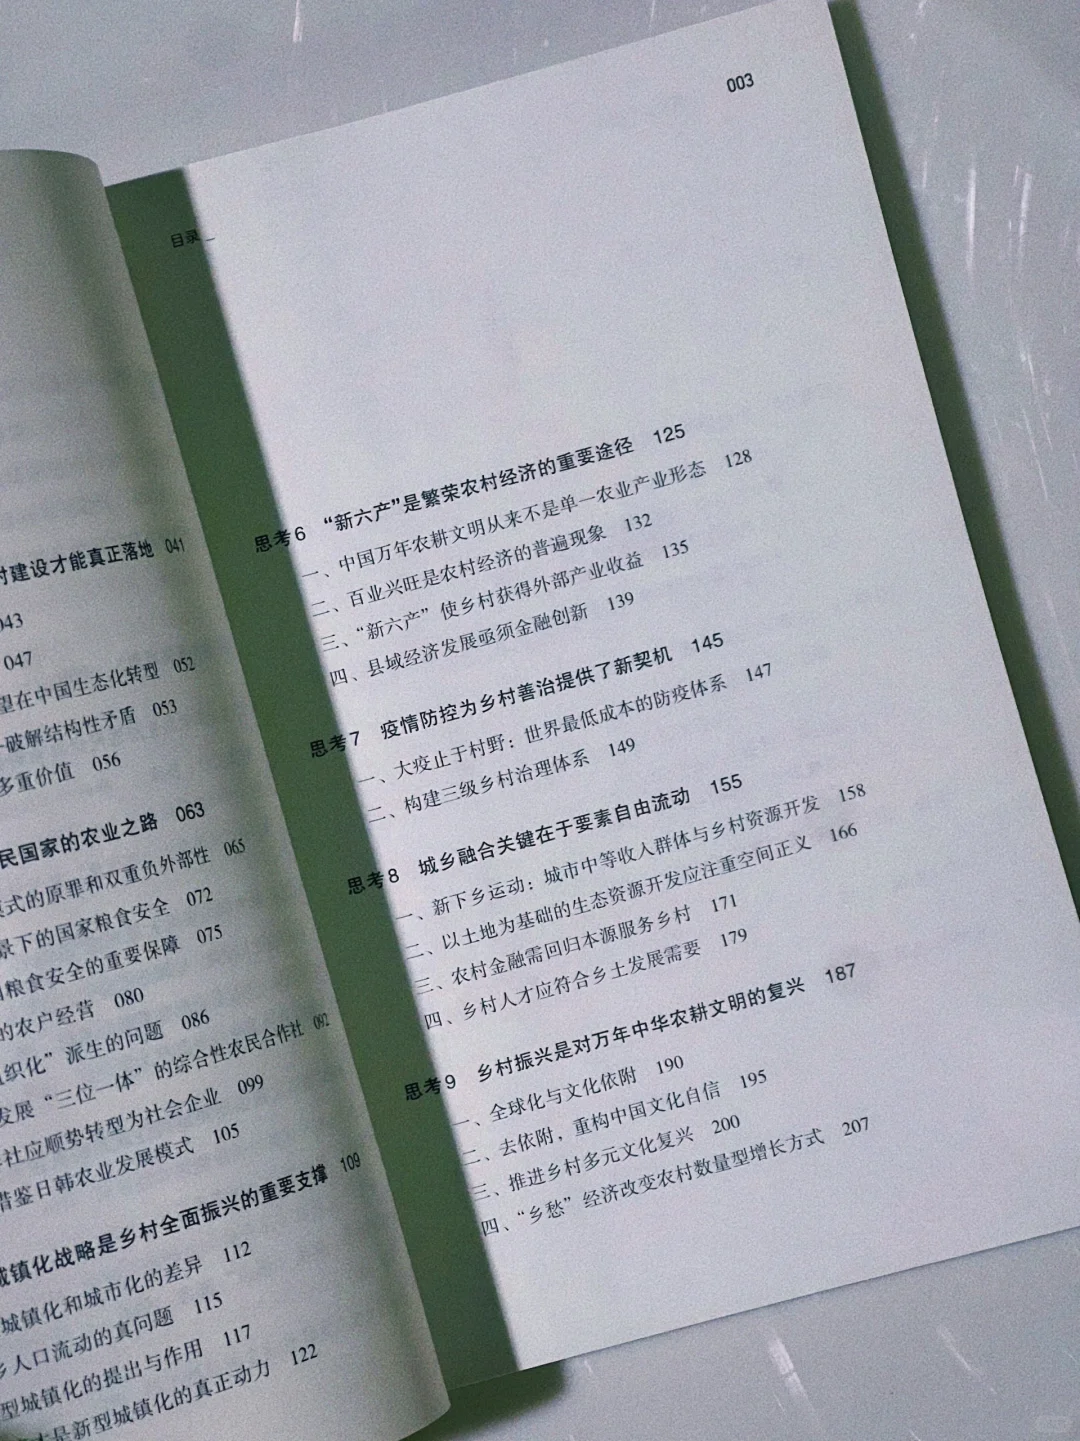 村建设才能真正落地 041
043
047
望在中国生态化转型 052
破解结构性矛盾 053
多重价值 056
民国家的农业之路 063
模式的原罪和双重负外部性 065
景下的国家粮食安全 072
粮食安全的重要保障 075
的农户经营 080
组织化”派生的问题 086
发展“三位一体”的综合性农民合作社 092
社应顺势转型为社会企业 099
借鉴日韩农业发展模式 105
城镇化战略是乡村全面振兴的重要支撑 109
城镇化和城市化的差异 112
乡人口流动的真问题 115
型城镇化的提出与作用 117
是新型城镇化的真正动力 122
003
目录
思考6 “新六产”是繁荣农村经济的重要途径 125
一、中国万年农耕文明从来不是单一农业产业形态 128
二、百业兴旺是农村经济的普遍现象 132
三、“新六产”使乡村获得外部产业收益 135
四、县域经济发展亟须金融创新 139
思考7 疫情防控为乡村善治提供了新契机 145
一、大疫止于村野：世界最低成本的防疫体系 147
二、构建三级乡村治理体系 149
思考8 城乡融合关键在于要素自由流动 155
一、新下乡运动：城市中等收入群体与乡村资源开发 158
二、以土地为基础的生态资源开发应注重空间正义 166
三、农村金融需回归本源服务乡村 171
四、乡村人才应符合乡土发展需要 179
思考9 乡村振兴是对万年中华农耕文明的复兴 187
一、全球化与文化依附 190
二、去依附，重构中国文化自信 195
三、推进乡村多元文化复兴 200
四、“乡愁”经济改变农村数量型增长方式 207